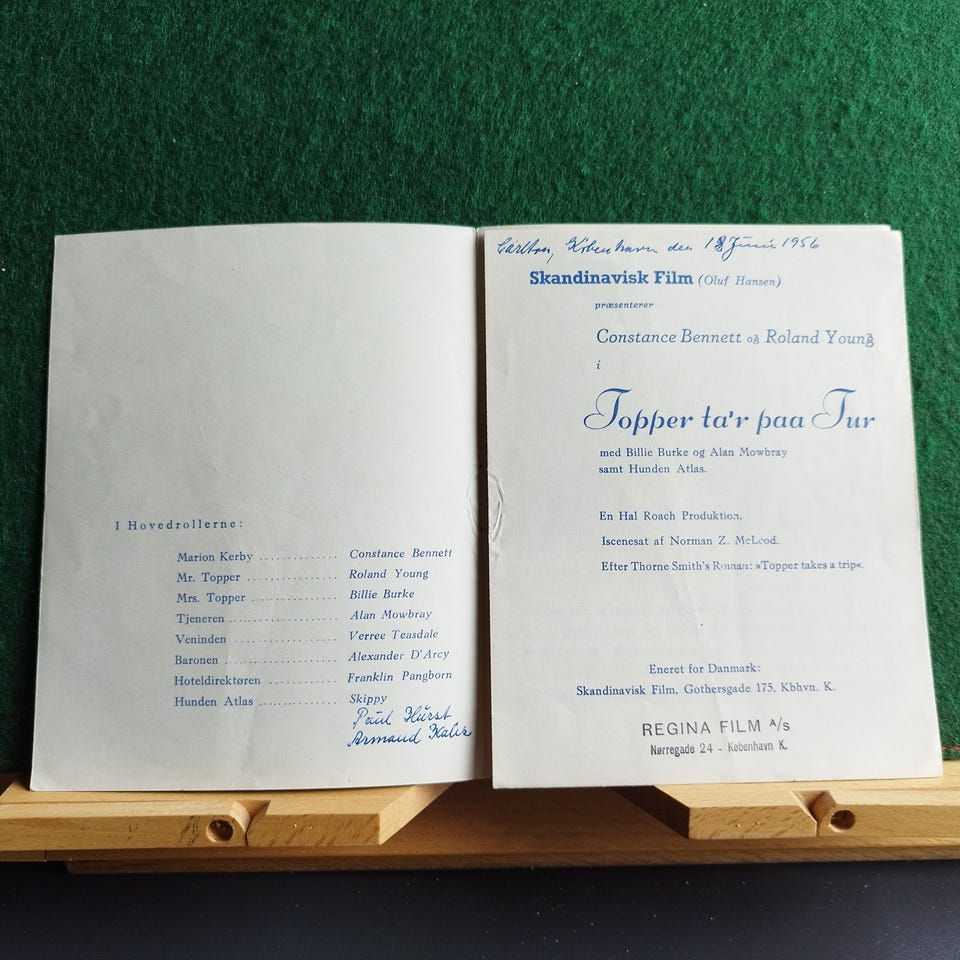 I Hovedrollerne:
Marion Kerby .............. Constance Bennett
Mr. Topper ................ Roland Young
Mrs. Topper ............... Billie Burke
Tjeneren .................. Alan Mowbray
Veninden .................. Verree Teasdale
Baronen ................... Alexander D'Arcy
Hoteldirektøren ........... Franklin Pangborn
Hunden Atlas .............. Skippy
Paul Hurst
Armand Kaliz
Carlton, København den 18 Juni 1956
Skandinavisk Film (Oluf Hansen)
præsenterer
Constance Bennett og Roland Young
i
Topper ta'r paa Tur
med Billie Burke og Alan Mowbray
samt Hunden Atlas.
En Hal Roach Produktion.
Iscenesat af Norman Z. McLeod.
Efter Thorne Smith's Roman: »Topper takes a trip«.
Eneret for Danmark:
Skandinavisk Film, Gothersgade 175, Kbhvn. K.
REGINA FILM A/S
Nørregade 24 - København K.